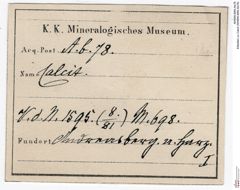 K. K. Mineralogisches Museum.
Acq. Post A.b. 78.
Nam Calcit.
V.d.N. 1595. (8./81) M. 698.
Fundort Andreasberg a. Harz.
I